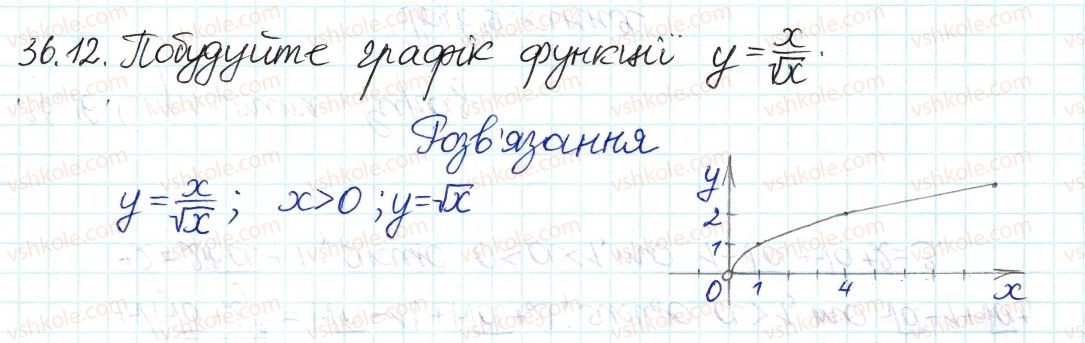 36.12. Побудуйте графік функції y = x/√x.
Розв'язання
y = x/√x ; x>0 ; y = √x
y
2
1
0 1 4 x